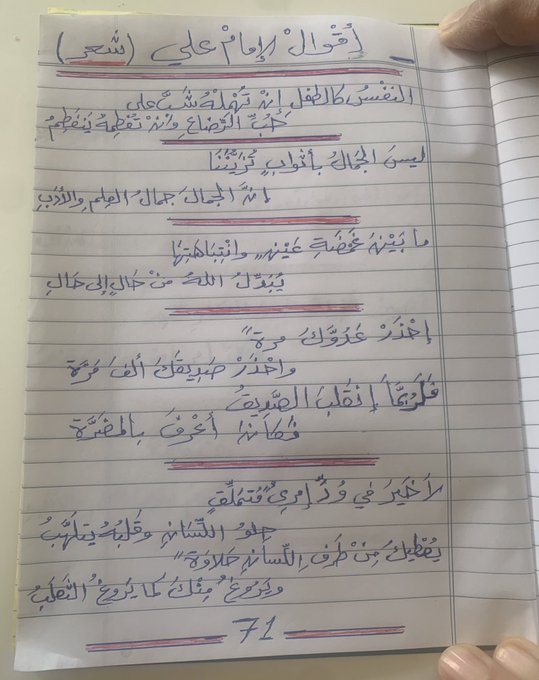 أقوال الإمام علي (شعر)
النفسُ كالطفل إنْ تَهْمِلْهُ شَبَّ على
حُبِّ الرَّضاعِ وانْ تَفْطِمهُ يَنفَطِمُ
ليسَ الجَمالُ بأثوابٍ تُزَيِّنُنَا
انَّ الجمالَ جمالُ العِلمِ والأدَبِ
ما بَيْنَ غَمضَةِ عَيْنٍ وانْتِبَاهَتِهَا
يُبَدِّلُ اللهُ منْ حَالٍ إلى حَالِ
إحْذَرْ عَدُوَّكَ مرةً
واحْذَرْ صَدِيقَكَ ألفَ مَرَّة
فَلَرُبَّمَا إنْقَلبَ الصَّدِيقُ
فكانَ أعْرَفَ بالمضَرَّة
لاَ خَيرَ في وُدِّ إمرِئٍ مُتَمَلِّقٍ
حِلوُ اللّسَانِ وقَلبُهُ يتلَهَّبُ
يُعْطِيكَ مِنْ طَرَفِ اللّسانِ حَلاوَةً
ويَرُوغُ مِنْكَ كَما يَروغُ الثَعلَبُ
71